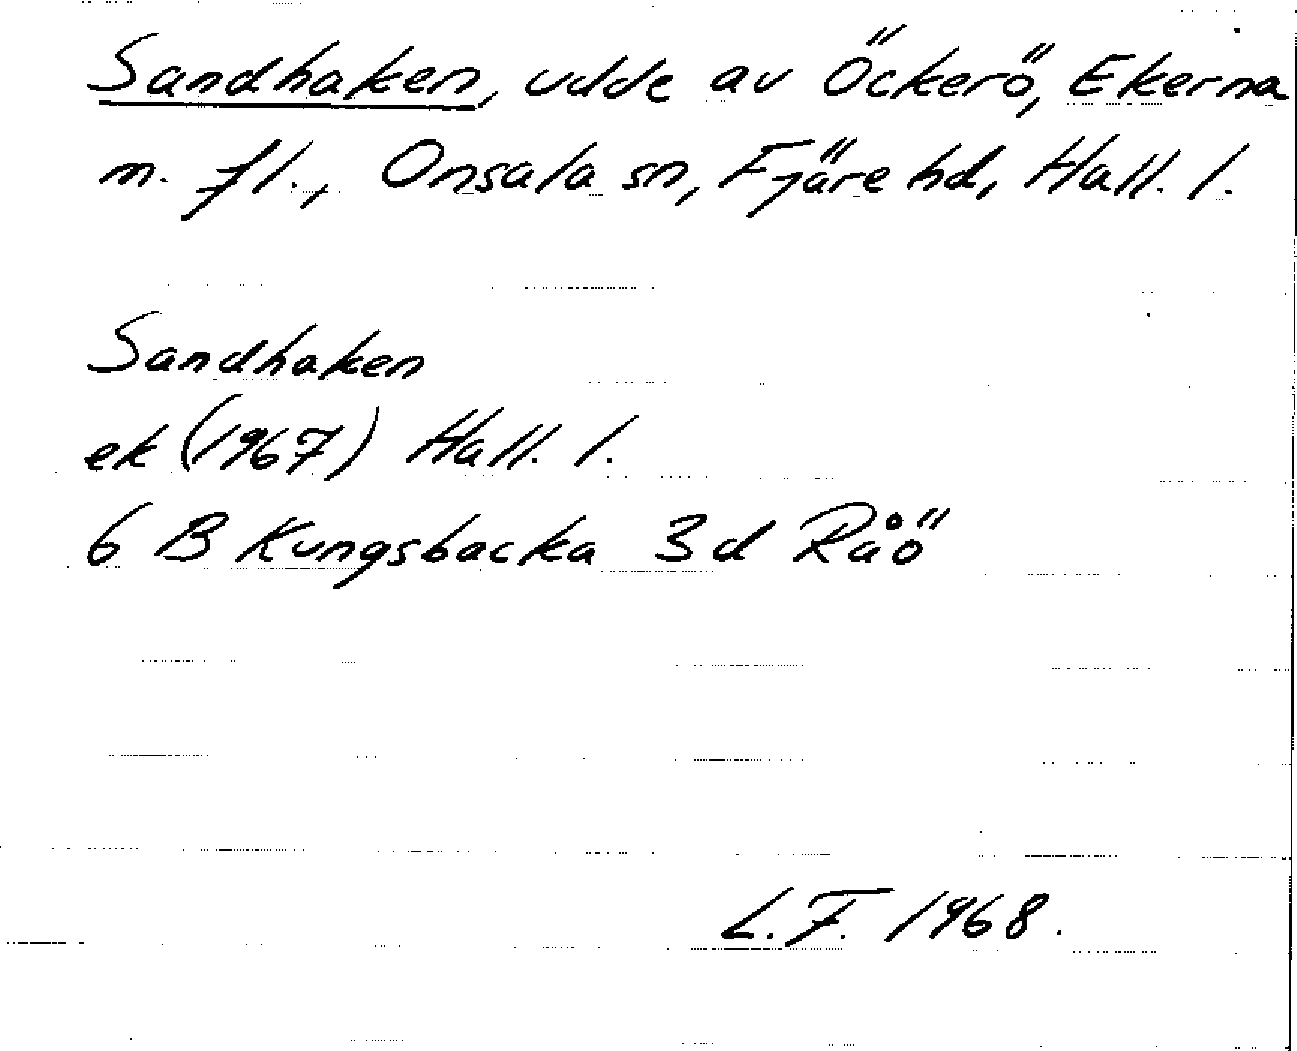 Sandhaken, udde av Öckerö, Ekerna
m. fl., Onsala sn, Fjäre hd, Hall. l.
Sandhaken
ek (1967) Hall. l.
6 B Kungsbacka 3d Råö
L.F. 1968.